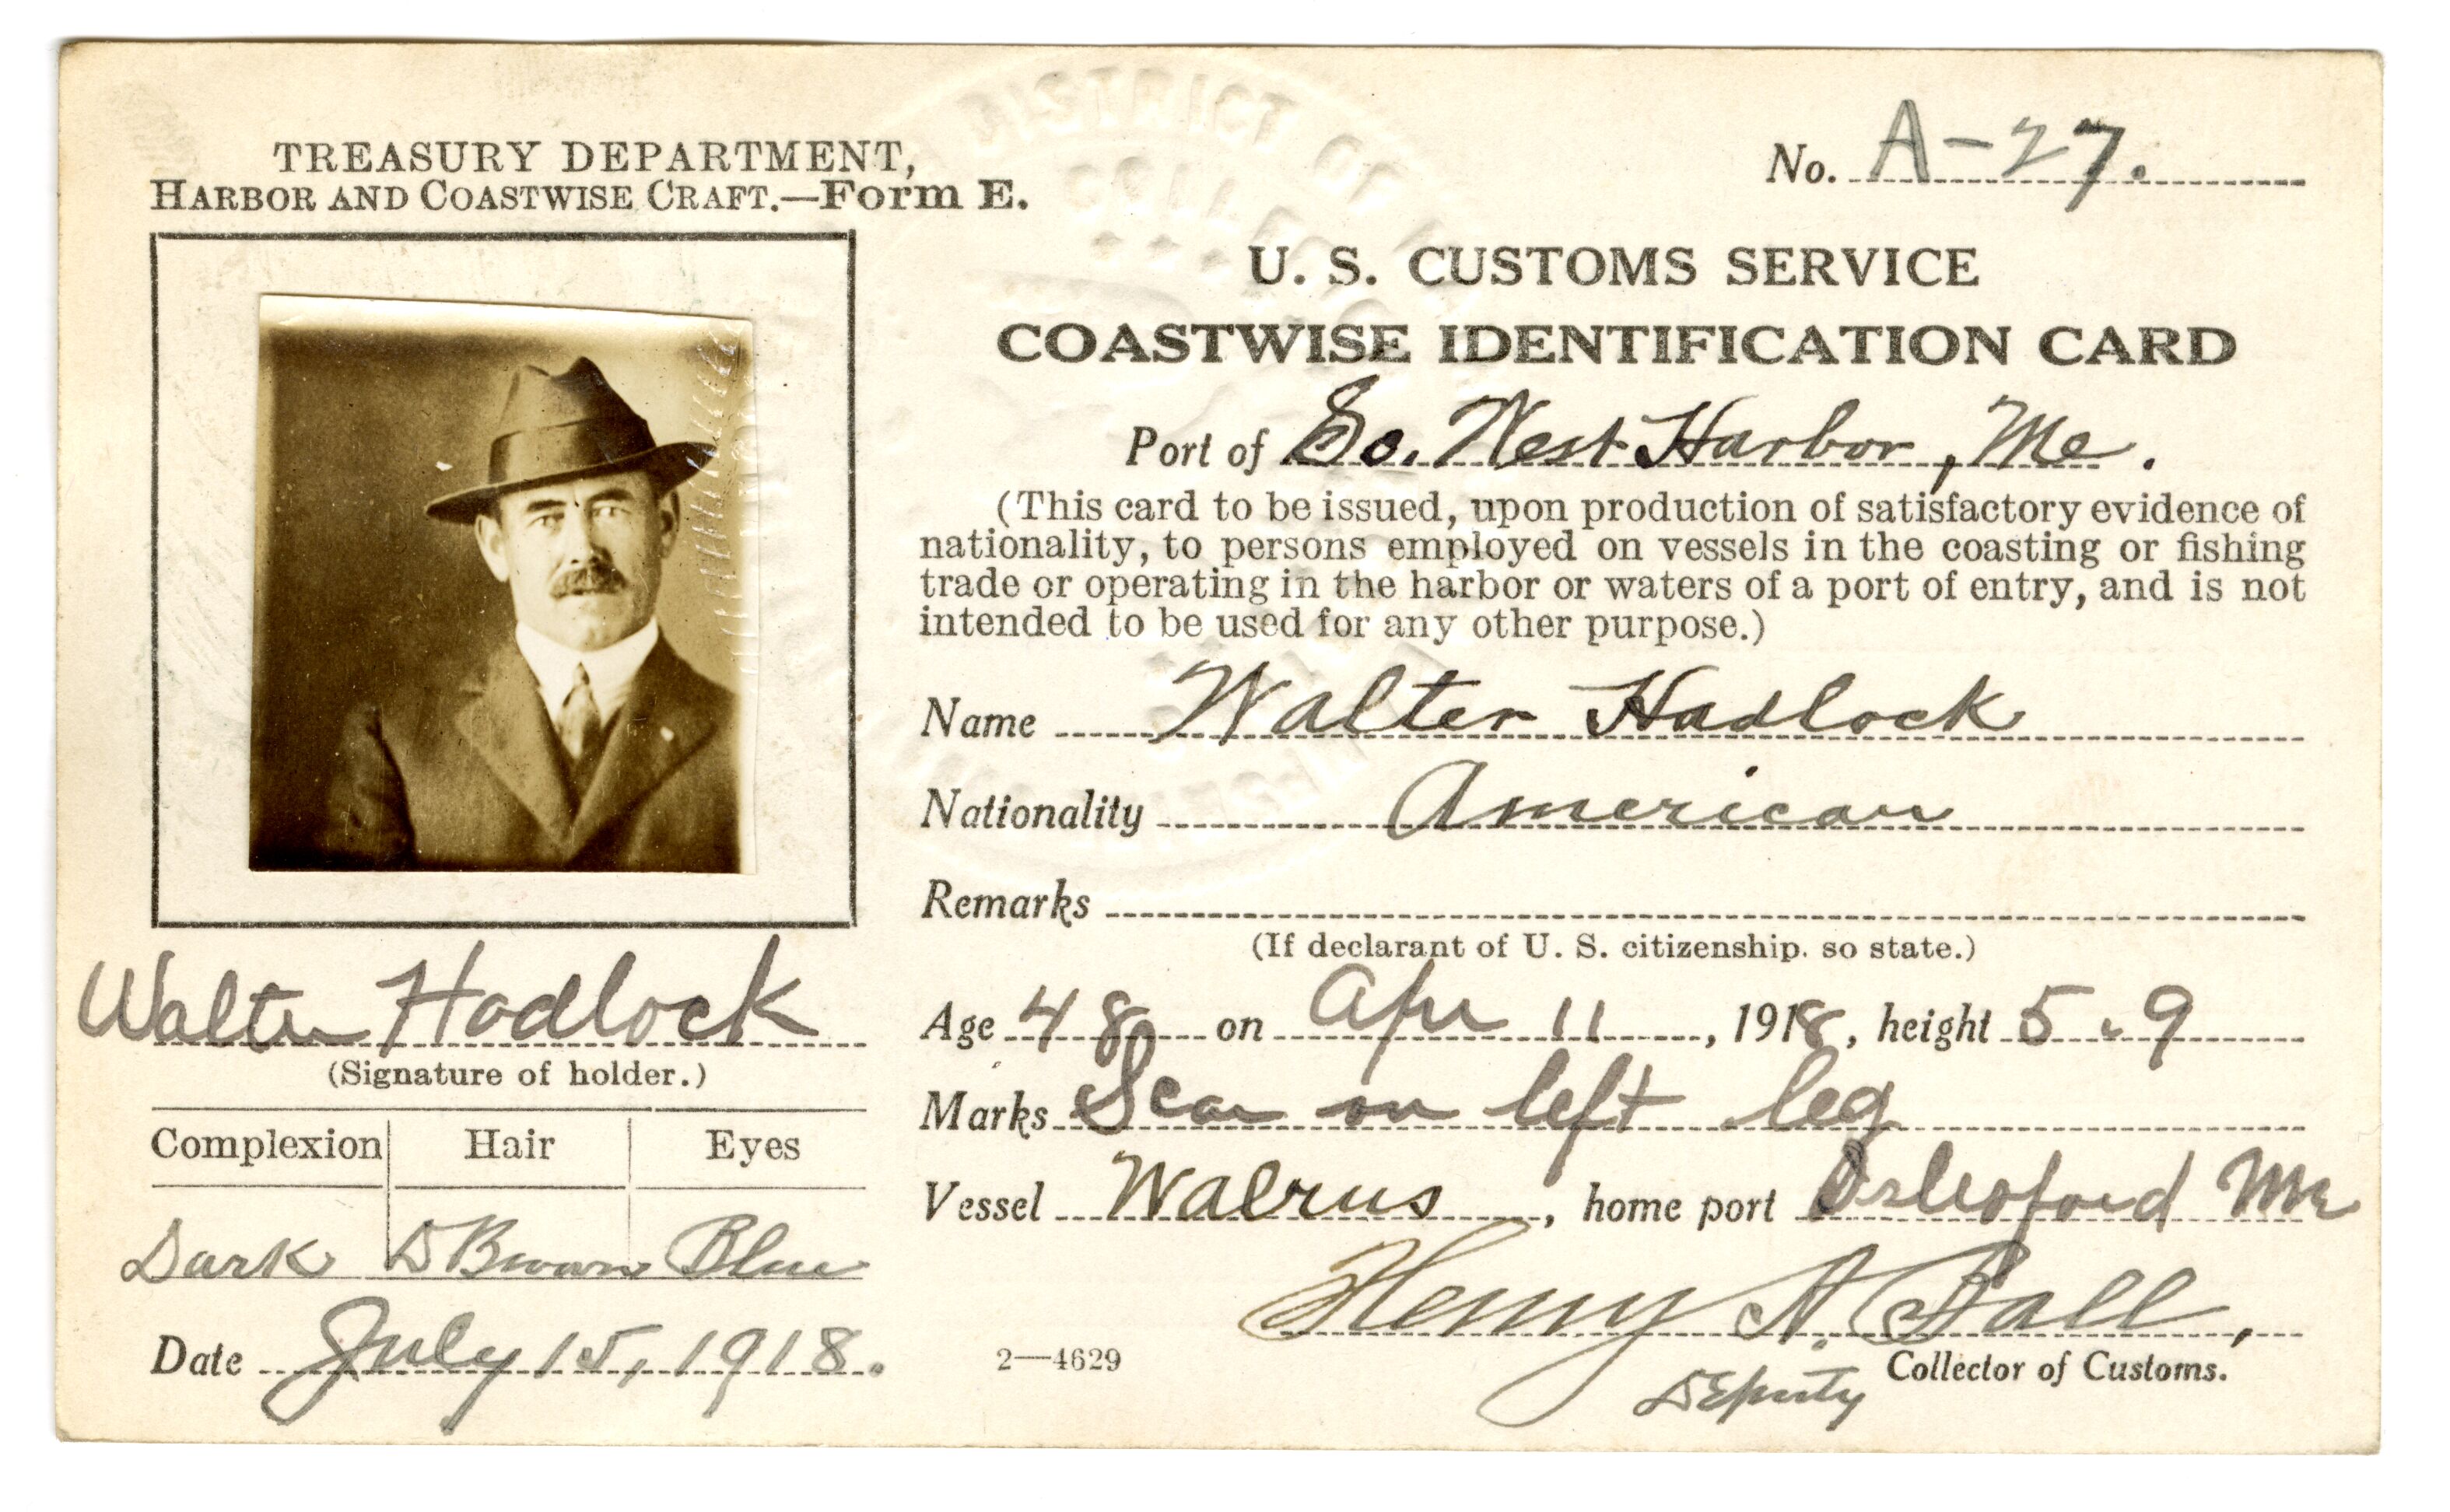 TREASURY DEPARTMENT,
HARBOR AND COASTWISE CRAFT.—Form E.
No. A-27.
U. S. CUSTOMS SERVICE
COASTWISE IDENTIFICATION CARD
Port of So. West Harbor, Me.
(This card to be issued, upon production of satisfactory evidence of
nationality, to persons employed on vessels in the coasting or fishing
trade or operating in the harbor or waters of a port of entry, and is not
intended to be used for any other purpose.)
Name Walter Hadlock
Nationality American
Remarks
(If declarant of U. S. citizenship, so state.)
Age 48 on Apr 11, 1918, height 5.9
Marks Scar on left leg
Vessel Walrus, home port Islesford Me
Henry A. Ball,
Deputy Collector of Customs.
Walter Hadlock
(Signature of holder.)
Complexion Hair Eyes
Dark D Brown Blue
Date July 15, 1918.
2—4629